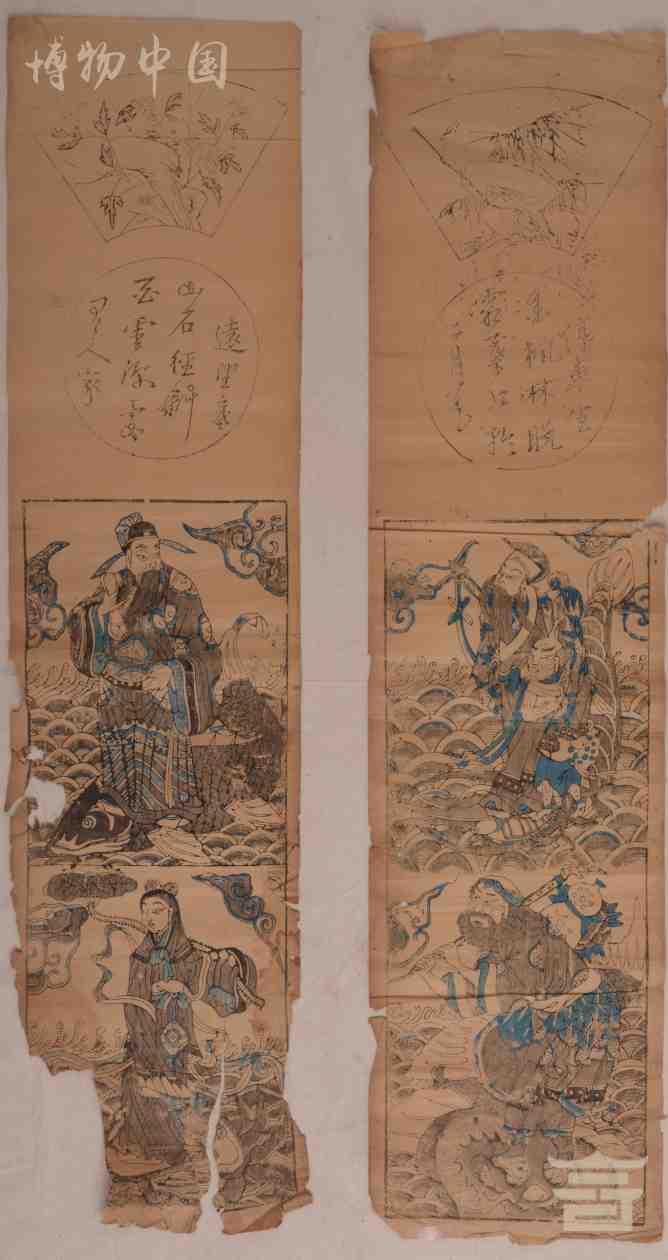 博物中国
遠望寒
山石徑斜
白雲深處
有人家
停車坐
愛楓林晚
霜葉紅於
二月花